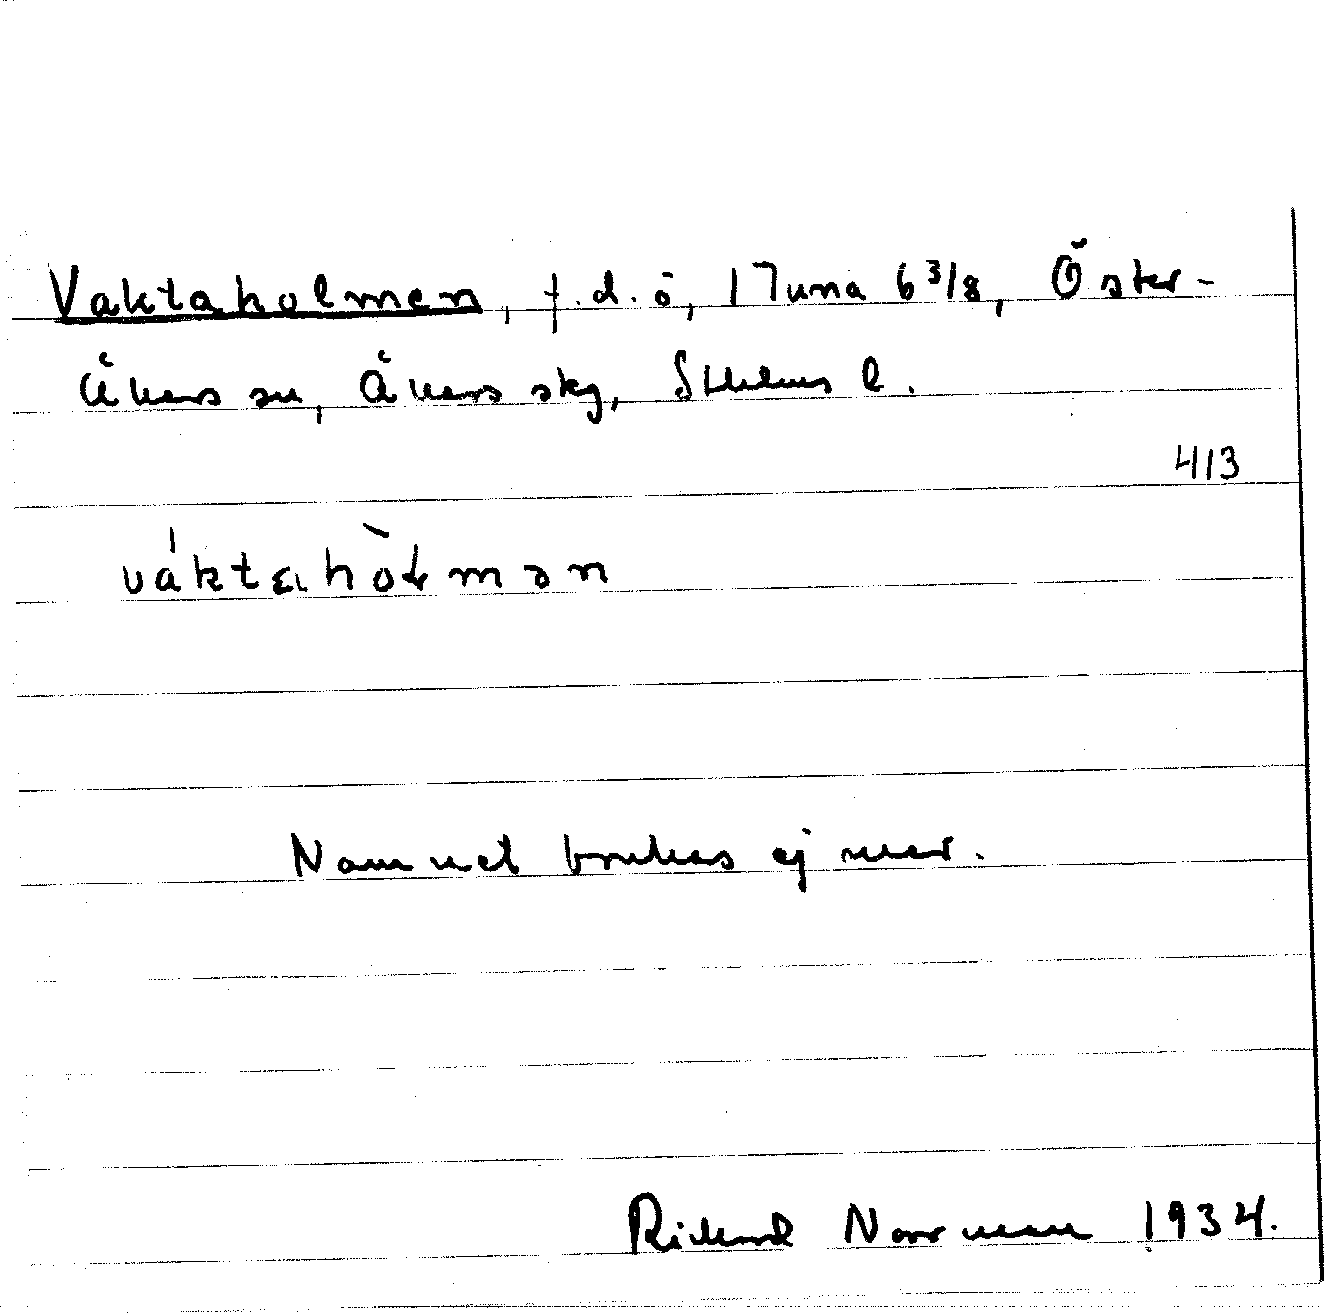 Vaktaholmen, f.d. ö, 1 Tuna 6 3/8, Öster-
Åkers sn, Åkers skg, Sthlms l.
413
váktahòlmən
Namnet brukas ej mer.
Rickard Norrman 1934.